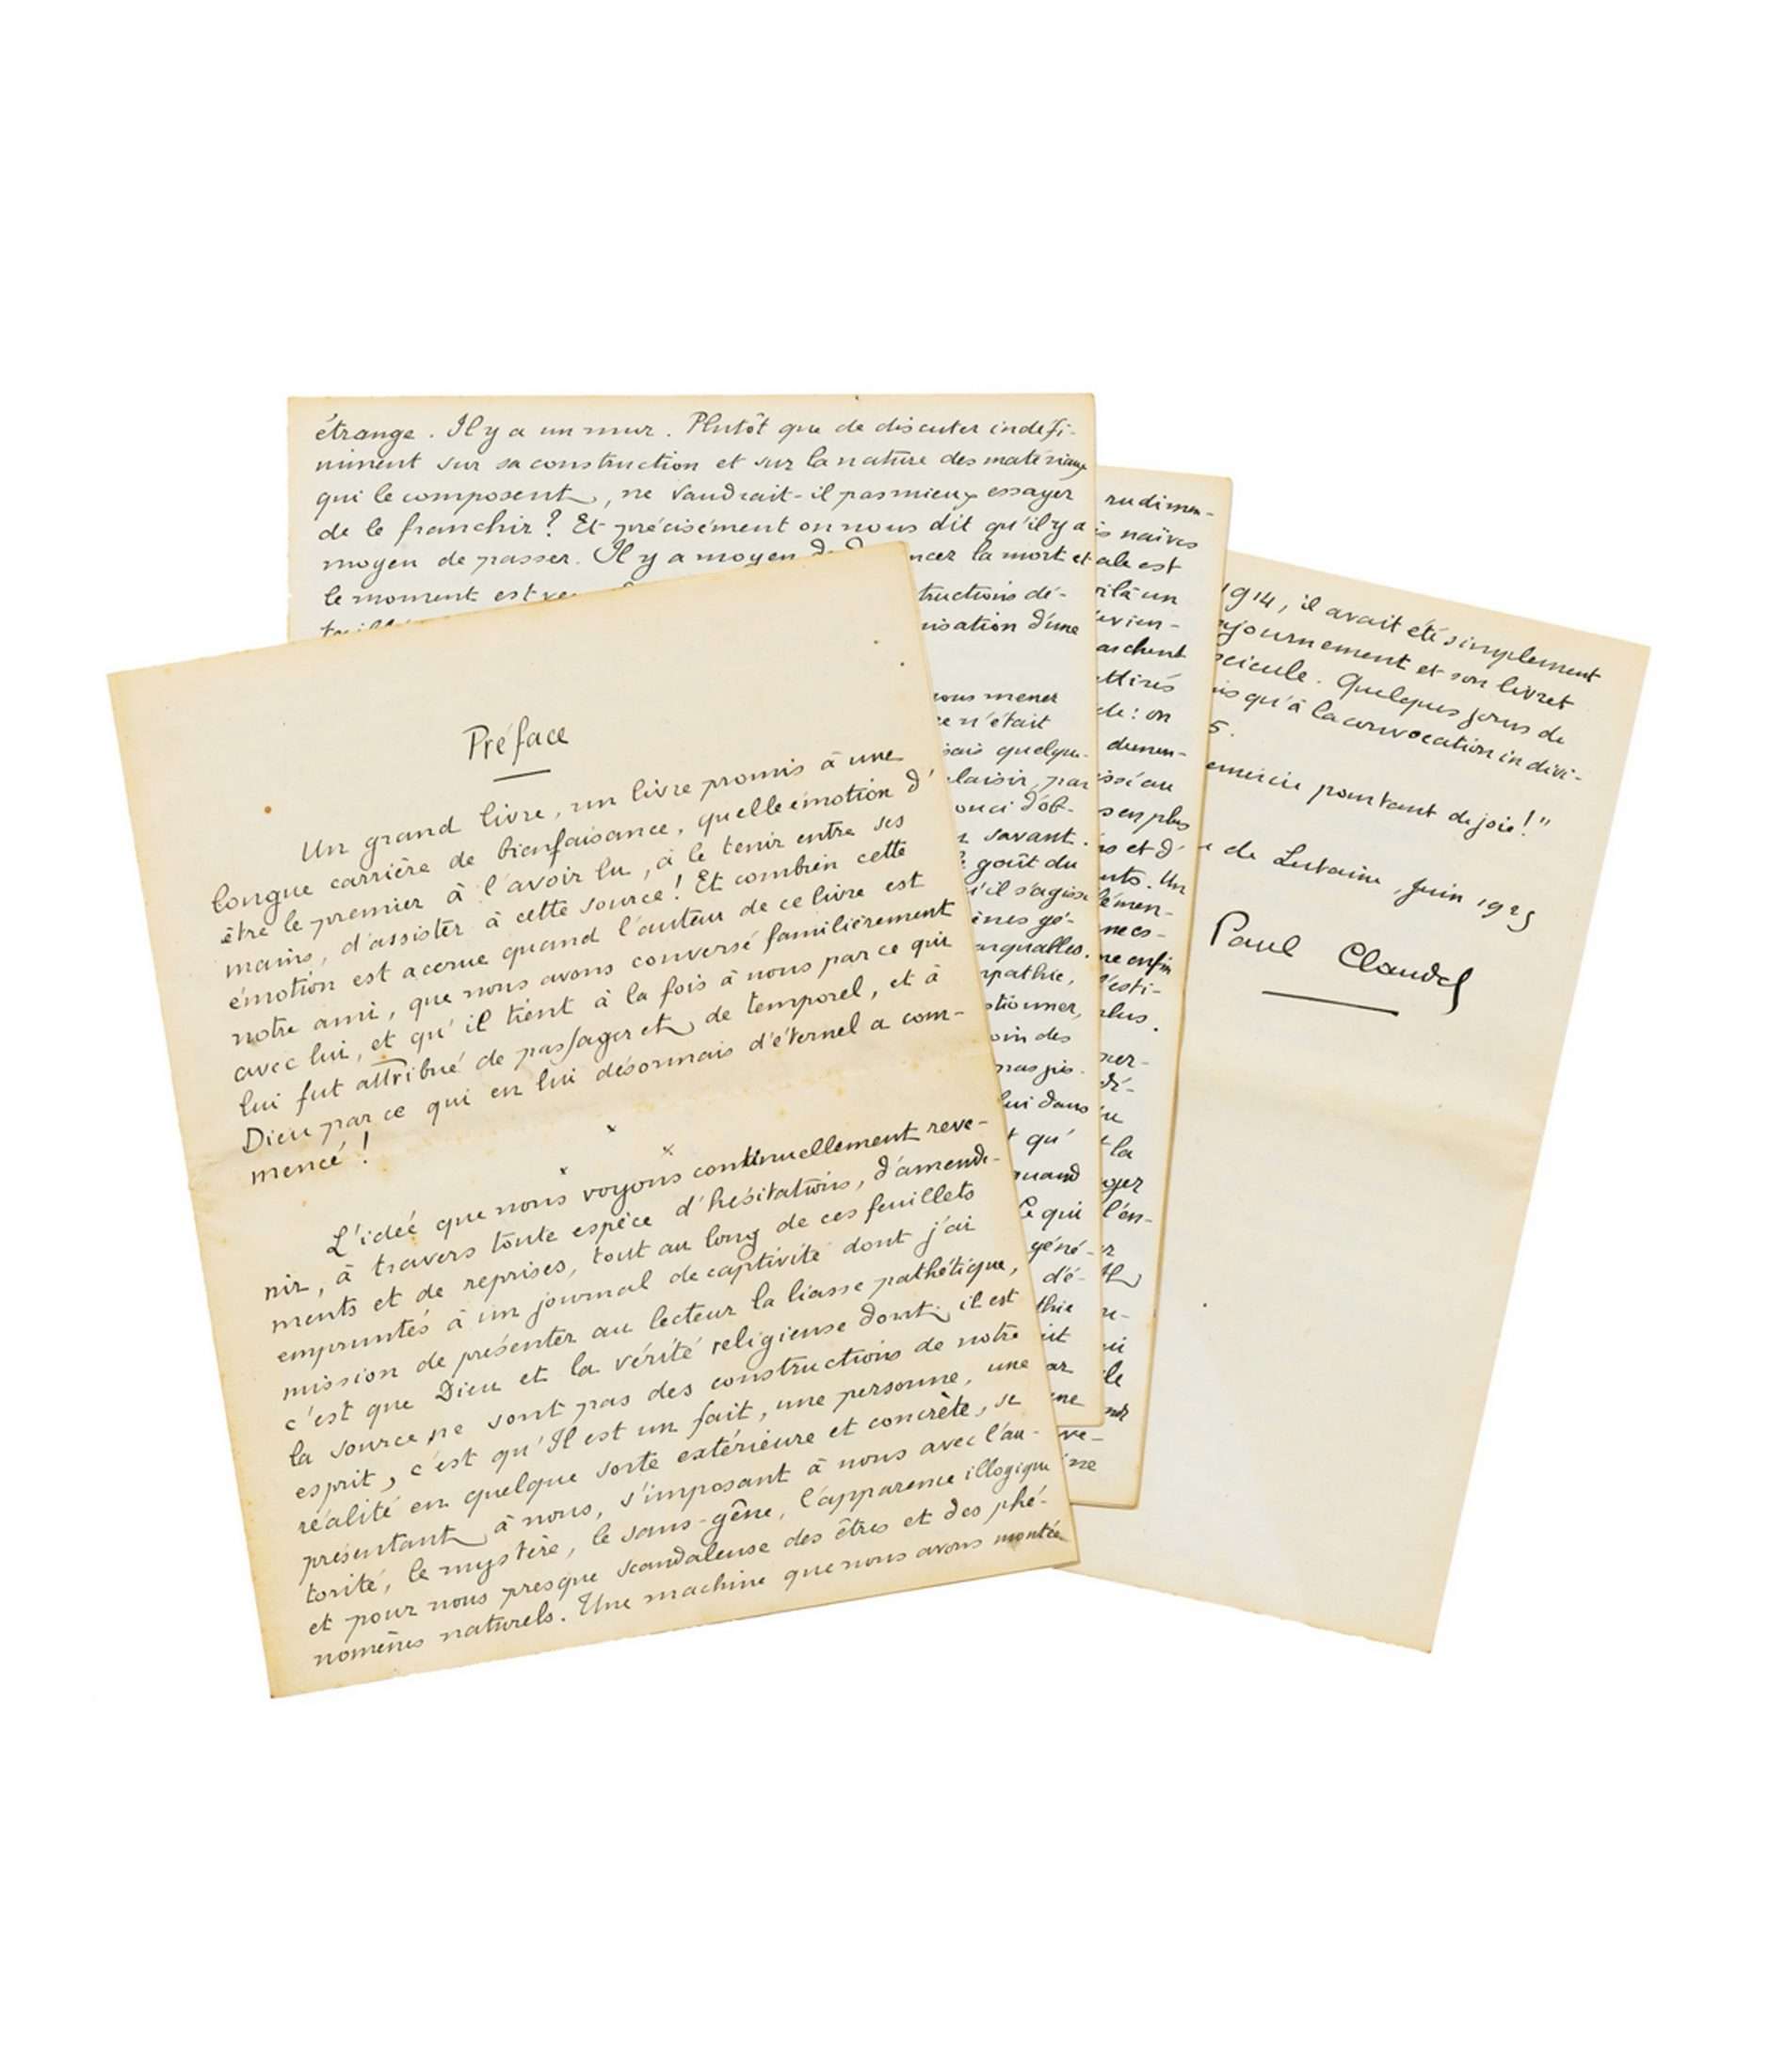 Préface
Un grand livre, un livre promis à une
longue carrière de bienfaisance, quelle émotion d'
être le premier à l'avoir lu, à le tenir entre ses
mains, d'assister à cette source! Et combien cette
émotion est accrue quand l'auteur de ce livre est
notre ami, que nous avons conversé familièrement
avec lui, et qu'il tient à la fois à nous par ce qui
lui fut attribué de passager et de temporel, et à
Dieu par ce qui en lui désormais d'éternel a com-
mencé!
x x x
L'idée que nous voyons continuellement reve-
nir, à travers toute espèce d'hésitations, d'amende-
ments et de reprises, tout au long de ces feuillets
empruntés à un journal de captivité dont j'ai
mission de présenter au lecteur la liasse pathétique,
c'est que Dieu et la vérité religieuse dont il est
la source, ne sont pas des constructions de notre
esprit, c'est qu'Il est un fait, une personne, une
réalité en quelque sorte extérieure et concrète, se
présentant à nous, s'imposant à nous avec l'au-
torité, le mystère, le sans-gêne, l'apparence illogique
et pour nous presque scandaleuse des êtres et des phé-
nomènes naturels. Une machine que nous avons montée
étrange. Il y a un mur. Plutôt que de discuter indéfi-
niment sur sa construction et sur la nature des matériaux
qui le composent, ne vaudrait-il pas mieux essayer
de le franchir? Et précisément on nous dit qu'il y a
moyen de passer. Il y a moyen la mort et
le moment est
tructions dé-
nisation d'une
nous mener
ce n'était
sais quelque
plaisir, par
souci d'ob-
savant.
goût du
qu'il s'agisse
gé-
arquables.
pathie,
stionner,
soin des
pas jus-
lui dans
qu'
quand
Ce qui
géné-
d'é-
thie
ar
rudimen-
naïves
ale est
voilà un
vien-
aschent
attirés
cle: on
demen-
issé au
en plus
et d'
nts. Un
lémen-
nes-
enfin
l'esti-
plus.
per-
di-
la
l'en-
1914, il avait été simplement
ajournement et son livret
scicule. Quelques jours de
qu'à la convocation indivi-
5.
remercie pourtant de joie!"
de Lutaine, Juin 1925
Paul Claudel